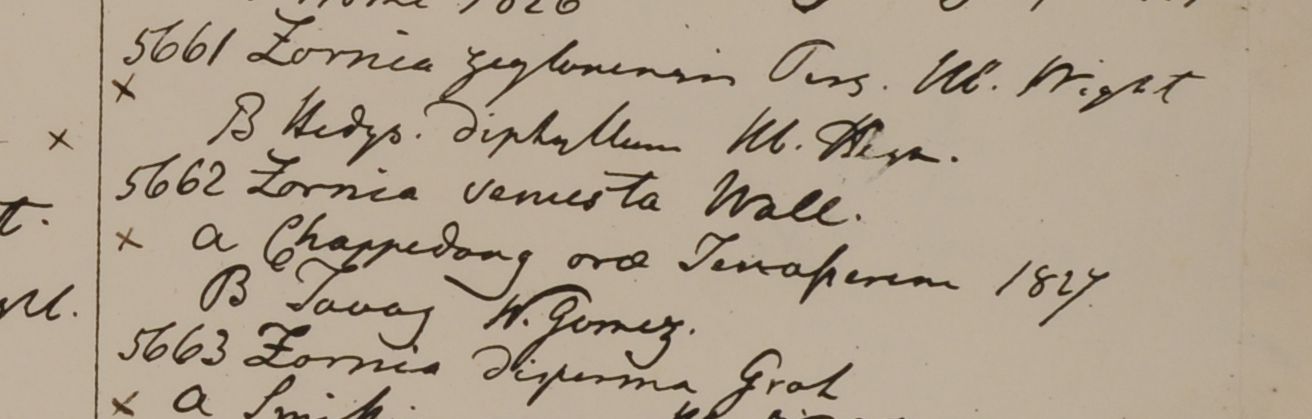 1826
5661 Zornia zeylonensis Pers. Hb. Wight
B Hedys. diphyllum Hb. Heyn.
5662 Zornia venusta Wall.
a Chappedong oræ Tenasserim 1827
B Tavoy W. Gomez.
5663 Zornia disperma Grah
a